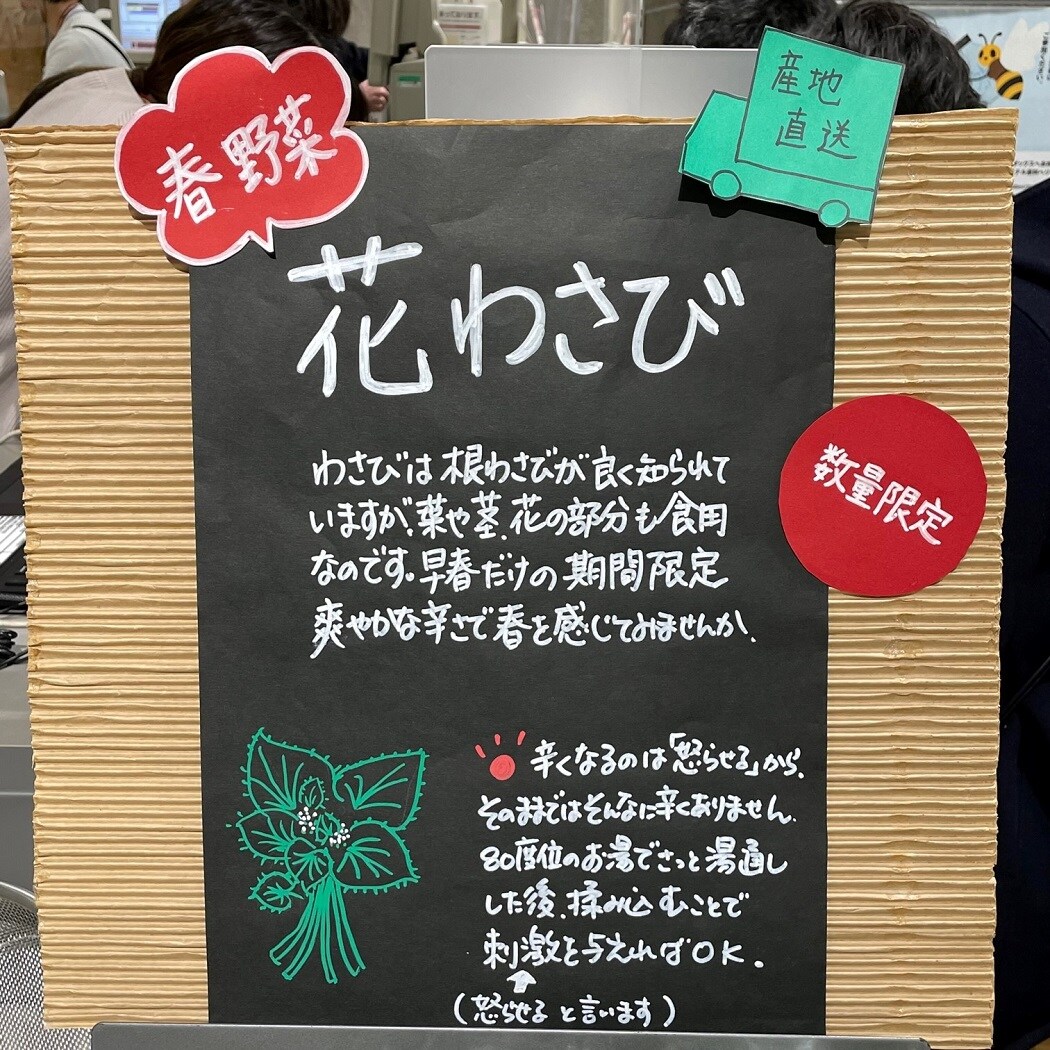 春野菜
産地
直送
花わさび
数量限定
わさびは根わさびが良く知られて
いますが、葉や茎、花の部分も食用
なのです。早春だけの期間限定
爽やかな辛さで春を感じてみませんか、
辛くなるのは「怒らせる」から、
そのままではそんなに辛くありません、
80度位のお湯でさっと湯通し
した後、揉み込むことで
刺激を与えればOK.
(怒らせると言います)